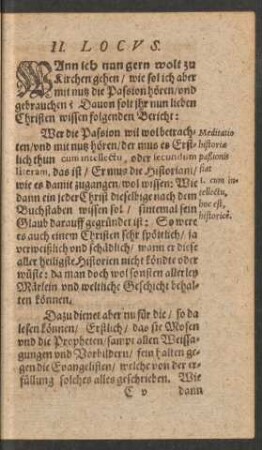 II. LOCVS.
WAnn ich nun gern wolt zu
Kirchen gehen / wie sol ich aber
mit nutz die Passion hören/und
gebrauchen? Davon solt ihr nun lieben
Christen wissen folgenden Bericht:
Wer die Passion wil wol betrach-
ten/und mit nutz hören/der mus es Erst-
lich thun cum intellectu, oder secundum
literam, das ist / Er mus die Historiam/
wie es damit zugangen/wol wissen: Wie
dann ein jeder Christ dieselbige nach dem
Buchstaben wissen sol / sintemal sein
Glaub darauff gegründet ist: So were
es auch einem Christen sehr spöttlich/ ja
verweißlich und schädlich/ wann er diese
aller heiligste Historien nicht köndte oder
wüste: da man doch wol sonsten allerley
Märlein und weltliche Geschicht behal-
ten können.
Dazu dienet aber nu für die / so da
lesen können/ Erstlich/ das sie Mosen
und die Propheten/sampt allen Weissa-
gungen und Vorbildern/ fein halten ge-
gen die Evangelisten/ welche von der er-
füllung solches alles geschrieben. Wie
C v dann
Meditatio
historiæ
passionis
fiat
1. cum in-
tellectu,
hoc est,
historicè.